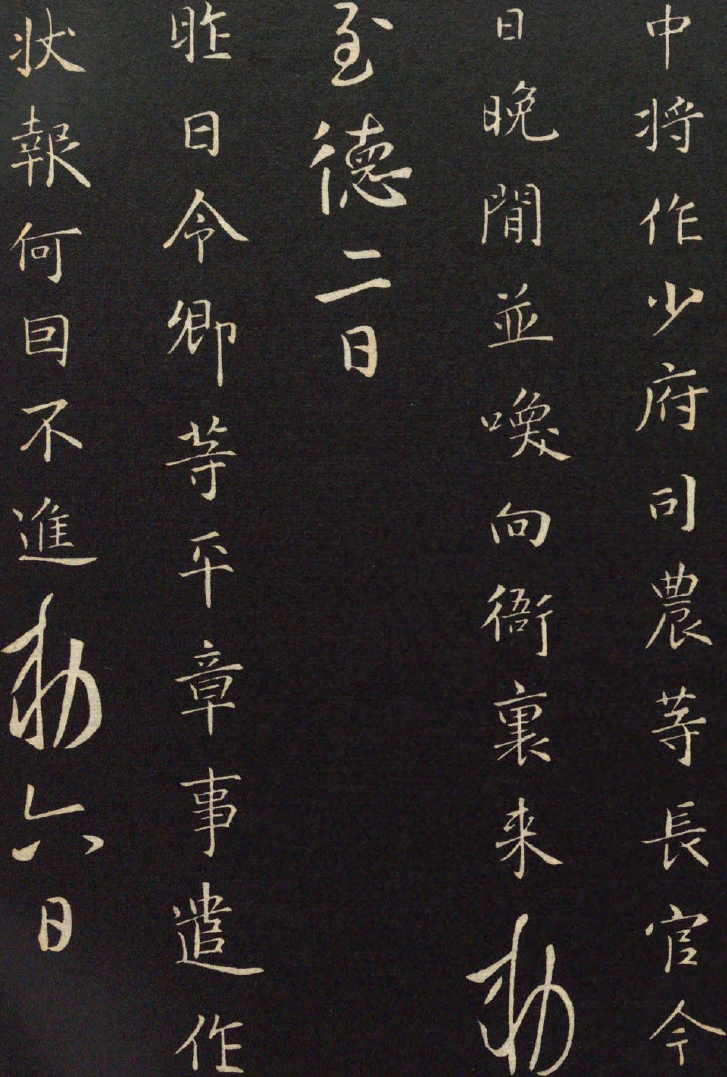 中将作少府司農等長官今
日晚間並喚向衙裏来勅
至德二日
昨日令卿等平章事遣作
状報何因不進勅六日